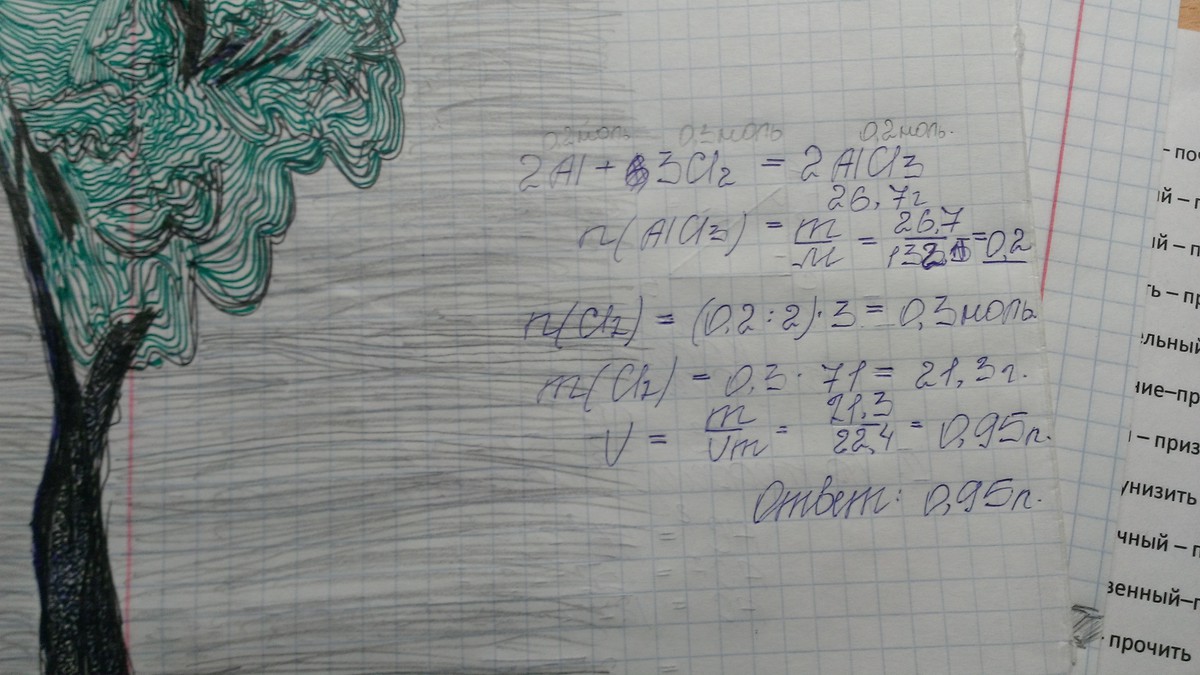 0,2моль 0,3моль 0,2моль.
2Al + 3Cl₂ = 2AlCl₃
26,7г
n(AlCl₃) = m/M = 26,7/133,5 = 0,2
n(Cl₂) = (0,2:2)·3 = 0,3моль
m(Cl₂) = 0,3 · 71 = 21,3г.
V = m/Vm = 21,3/22,4 = 0,95л.
Ответ: 0,95л.
ий – п
ый – п
ть – пр
ельный
ние–пр
– приз
унизить
чный – п
венный–п
прочить